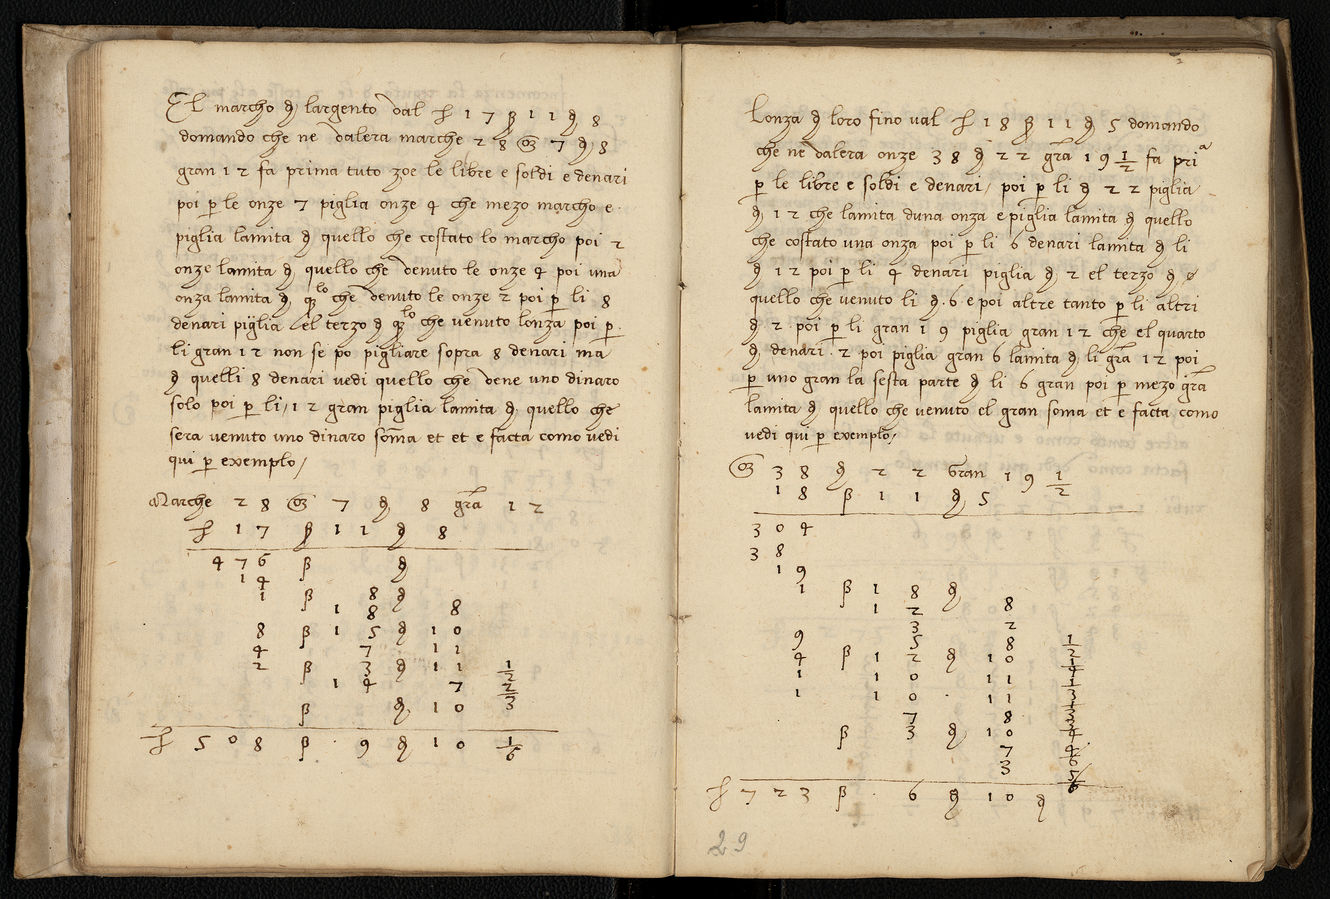 El marcho đ largento val £ 1 7 ß 1 1 đ 8
domando che ne valera marche 2 8 oz 7 đ 8
gran 1 2 fa prima tuto zoe le libre e soldi e denari
poi ꝑ le onze 7 piglia onze 4 che mezo marcho e
piglia lamita đ quello che costato lo marcho poi 2
onze lamita đ quello che venuto le onze 4 poi una
onza lamita đ qlo che venuto le onze 2 poi ꝑ li 8
denari piglia el terzo đ qlo che venuto lonza poi ꝑ
li gran 1 2 non se po pigliare sopra 8 denari ma
đ quelli 8 denari vedi quello che vene uno dinaro
solo poi ꝑ li 1 2 gran piglia lamita đ quello che
sera venuto uno dinaro soma et et e facta como vedi
qui ꝑ exemplo /
Marche 2 8 oz 7 đ 8 gra 1 2
£ 1 7 ß 1 1 đ 8
4 7 6 ß đ
1 4
1 ß 8 đ
1 8 8
8 ß 1 5 đ 1 0
4 7 1 1
2 ß 3 đ 1 1 1/2
1 4 7 2/3
ß đ 1 0
£ 5 0 8 ß 9 đ 1 0 1/6
Lonza đ loro fino val £ 1 8 ß 1 1 đ 5 domando
che ne valera onze 3 8 đ 2 2 gra 1 9 1/2 fa pria
ꝑ le libre e soldi e denari / poi ꝑ li đ 2 2 piglia
đ 1 2 che lamita duna onza e piglia lamita đ quello
che costato una onza poi ꝑ li 6 denari lamita đ li
đ 1 2 poi ꝑ li 4 denari piglia đ 2 el terzo đ
quello che venuto li đ 6 e poi altre tanto ꝑ li altri
đ 2 poi ꝑ li gran 1 9 piglia gran 1 2 che el quarto
đ denari 2 poi piglia gran 6 lamita đ li gra 1 2 poi
ꝑ uno gran la sesta parte đ li 6 gran poi ꝑ mezo gra
lamita đ quello che venuto el gran soma et e facta como
vedi qui ꝑ exemplo /
oz 3 8 đ 2 2 Gran 1 9 1/2
1 8 ß 1 1 đ 5
3 0 4
3 8
1 9
1 ß 1 8 đ
1 2 8
3 2
9 5 8 1/2
4 ß 1 2 đ 1 0 1/4
1 1 0 1 1 1/3
1 1 0 1 1 1/3
7 8
ß 3 đ 1 0
7
3 5/6
£ 7 2 3 ß 6 đ 1 0 đ
29